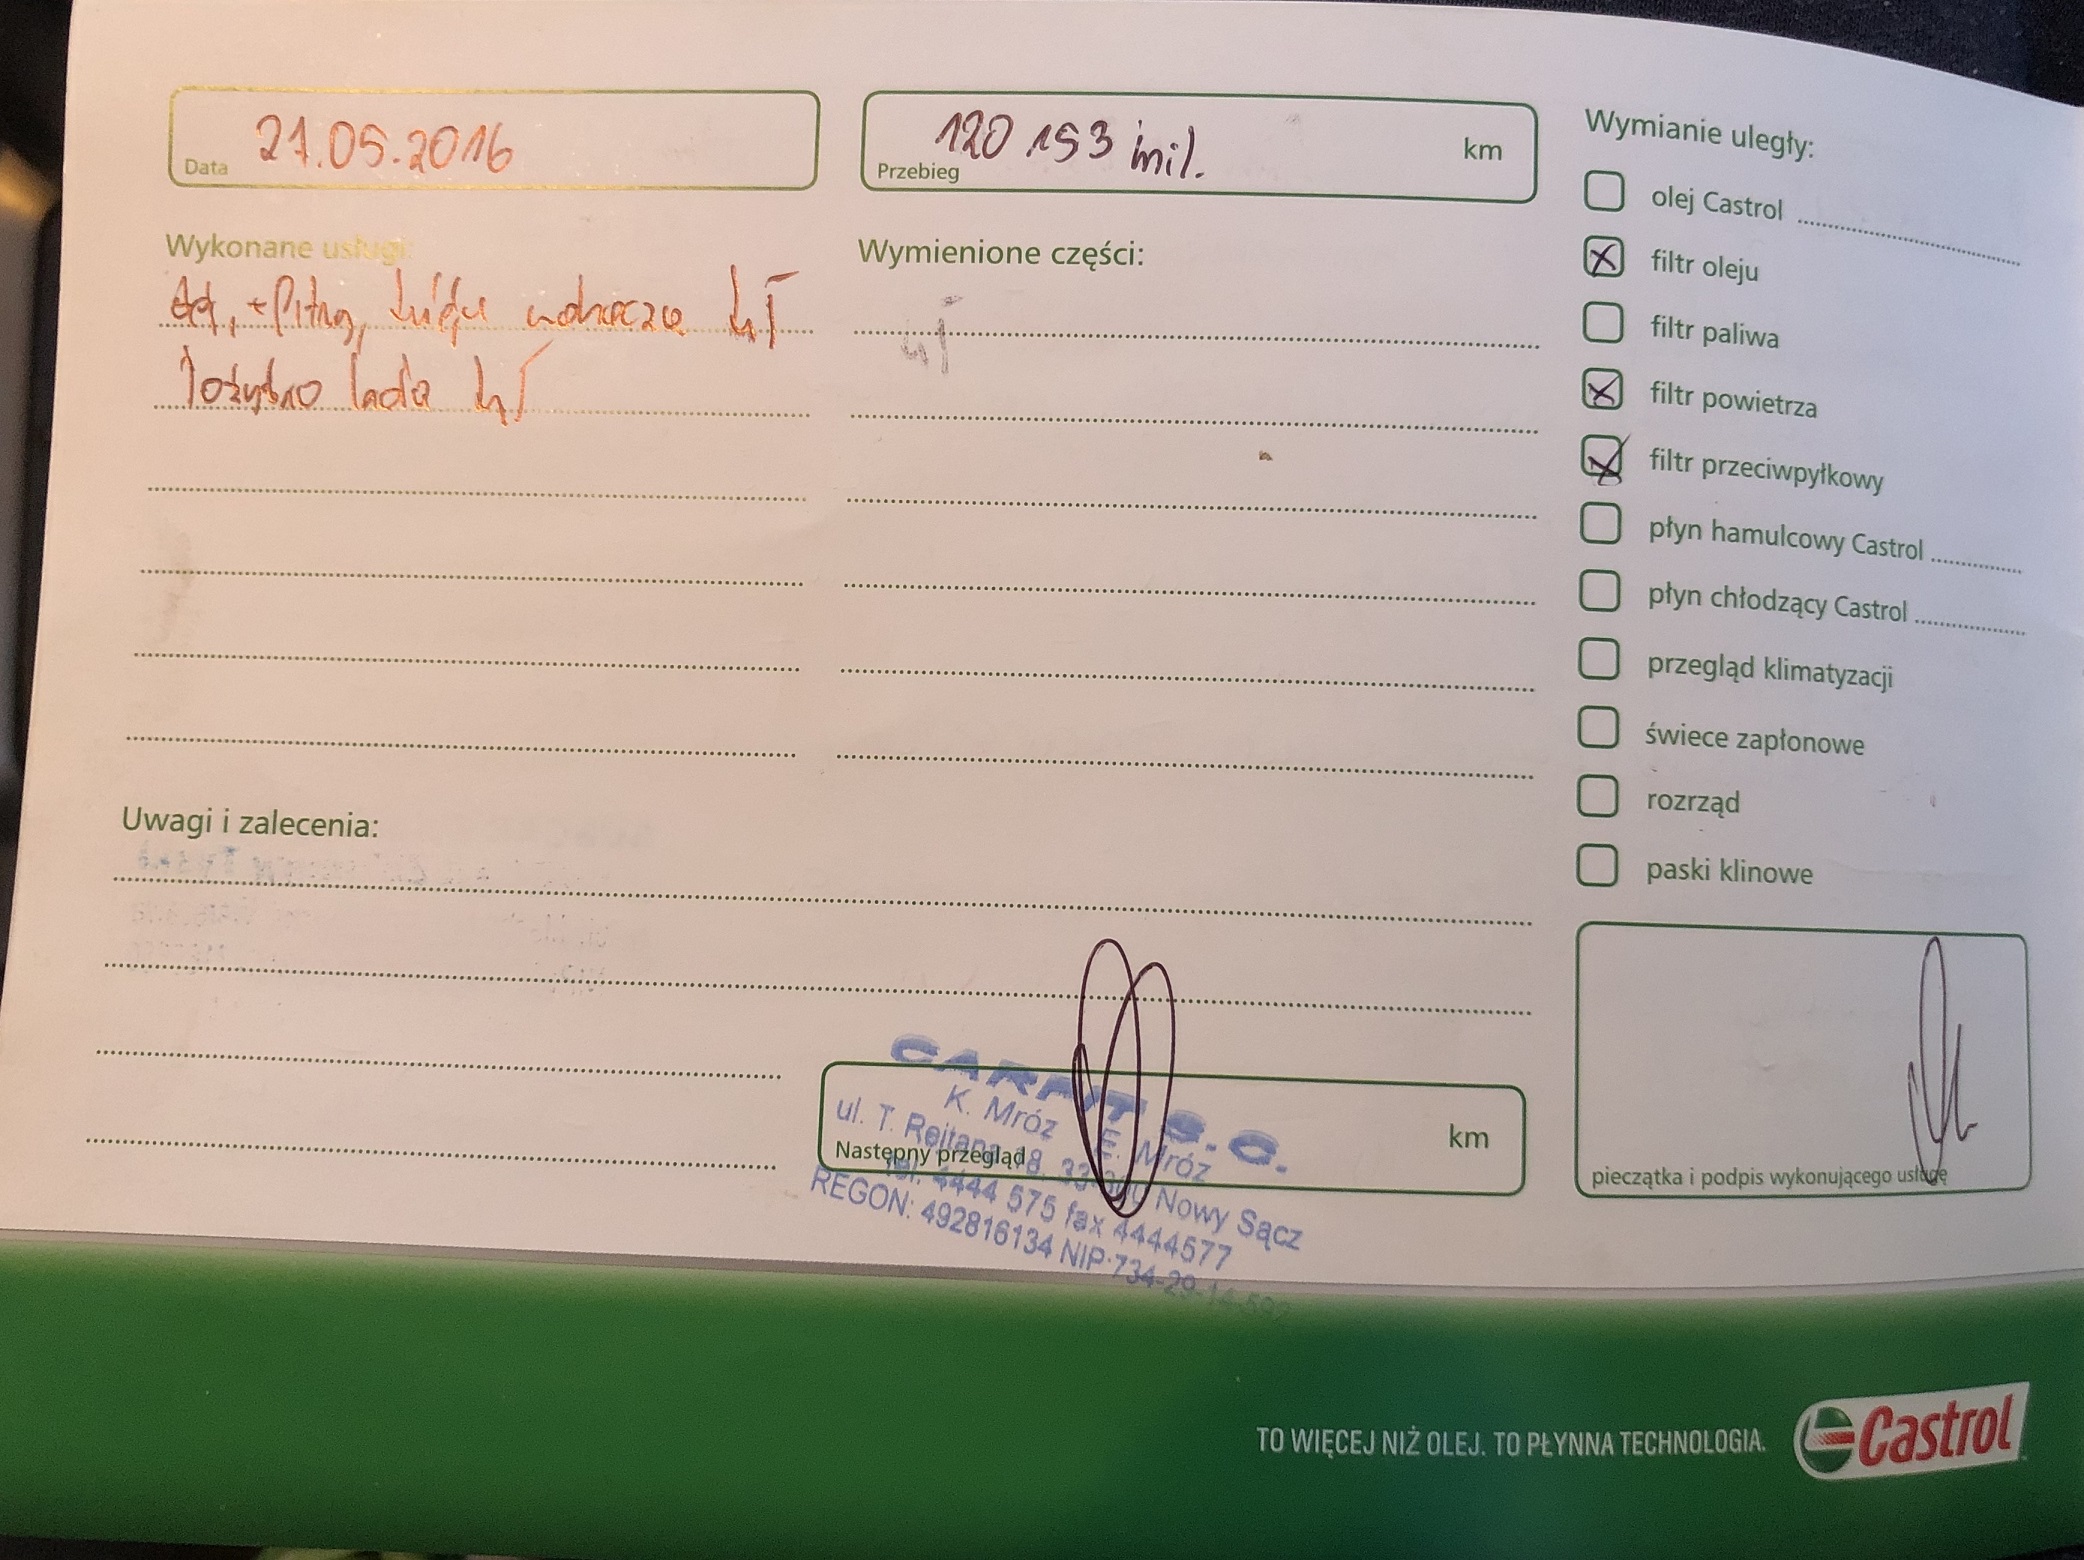 21.05.2016
Data
120 153 mil.
km
Przebieg
Wykonane usługi:
+ filtry, wahacza
łożysko
Wymienione części:
Wymianie uległy:
olej Castrol
filtr oleju
filtr paliwa
filtr powietrza
filtr przeciwpyłkowy
płyn hamulcowy Castrol
płyn chłodzący Castrol
przegląd klimatyzacji
świece zapłonowe
rozrząd
paski klinowe
Uwagi i zalecenia:
S.C.
K. Mróz E. Mróz
ul. T. Rejtana 18, 33-300 Nowy Sącz
tel. 4444 575 fax 4444577
REGON: 492816134 NIP 734-29-14-597
Następny przegląd
km
pieczątka i podpis wykonującego usługę
TO WIĘCEJ NIŻ OLEJ. TO PŁYNNA TECHNOLOGIA.
Castrol